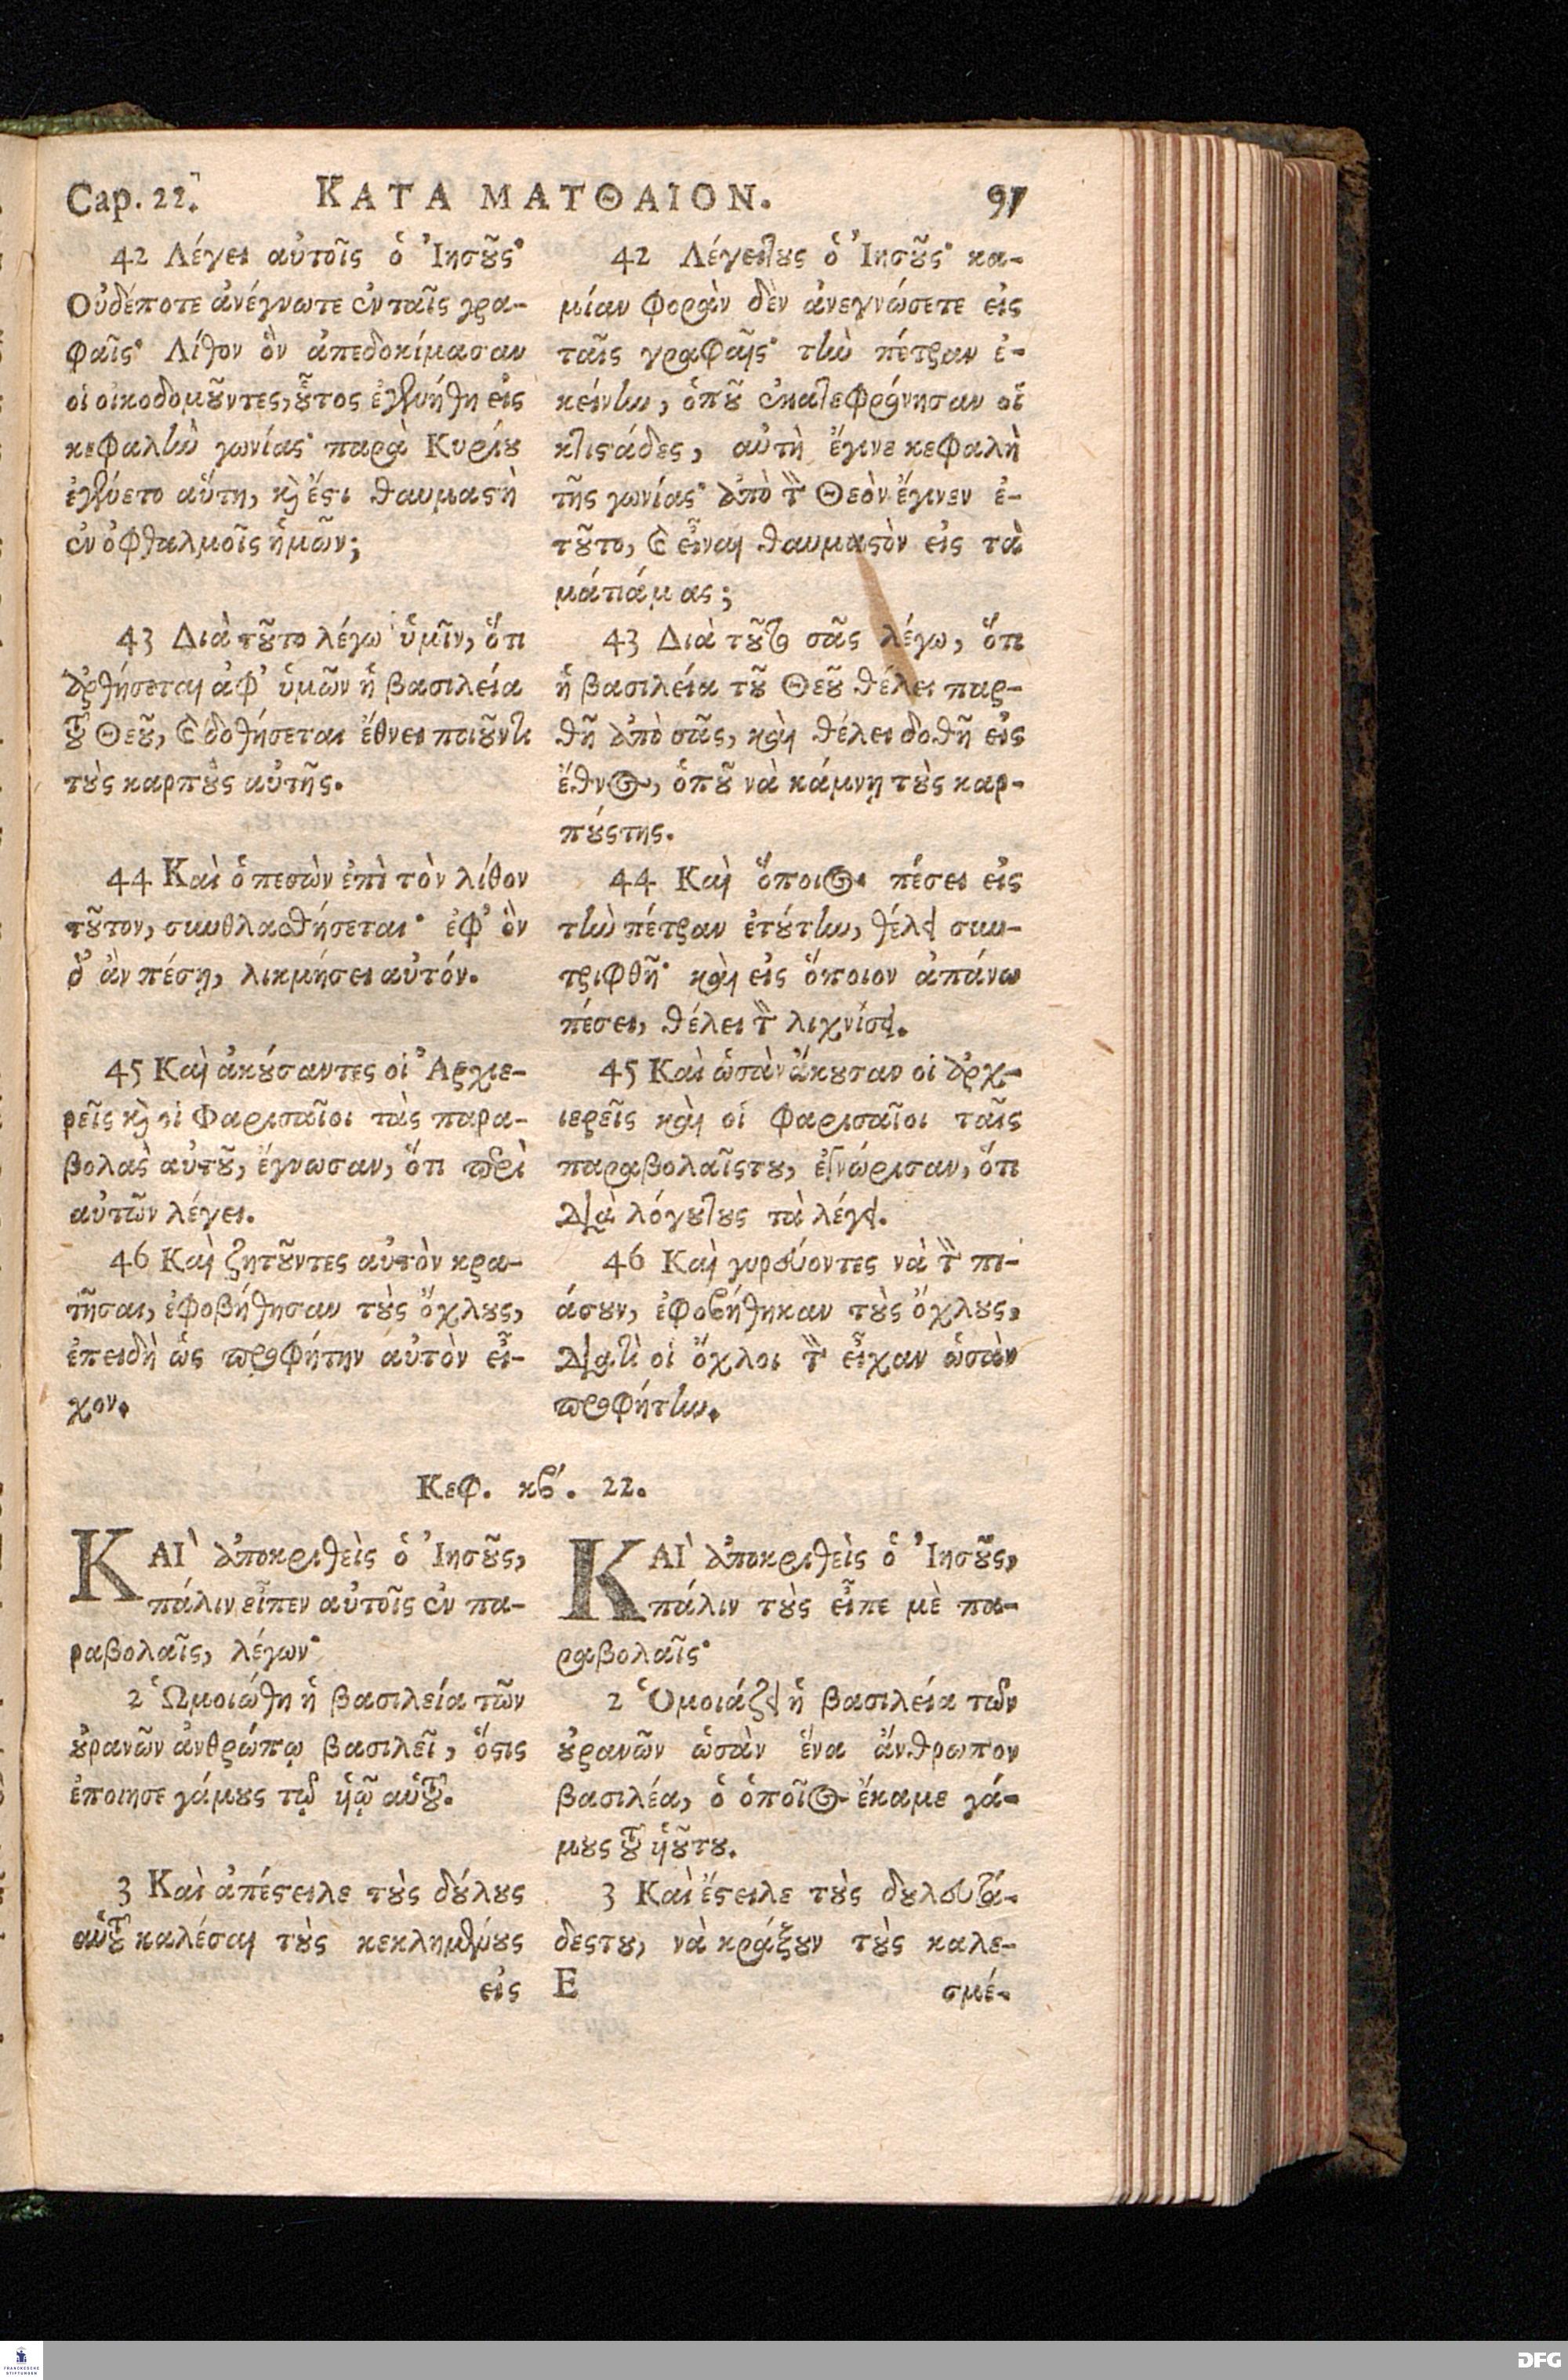 Cap. 22. ΚΑΤΑ ΜΑΤΘΑΙΟΝ. 97
42 Λέγει αὐτοῖς ὁ Ἰησȣ͂ς·
Οὐδέποτε ἀνέγνωτε ἐν ταῖς γρα-
φαῖς· Λίθον ὃν ἀπεδοκίμασαν
οἱ οἰκοδομȣ͂ντες, ȣ̔͂τος ἐγενήθη εἰς
κεφαλὴν γωνίας· παρὰ Κυρίȣ
ἐγένετο αὕτη, κ̀ ἔϛι θαυμαϛὴ
ἐν ὀφθαλμοῖς ἡμῶν;
43 Διὰ τȣ͂το λέγω ὑμῖν, ὅτι
ἀρθήσεται ἀφ' ὑμῶν ἡ βασιλεία
τȣ͂ Θεȣ͂, ϗ δοθήσεται ἔθνει ποιȣ͂ντι
τȣ̀ς καρπȣ̀ς αὐτῆς.
44 Καὶ ὁ πεσὼν ἐπὶ τὸν λίθον
τȣ͂τον, συνθλασθήσεται· ἐφ' ὃν
δ' ἂν πέσῃ, λικμήσει αὐτόν.
45 Καὶ ἀκȣ́σαντες οἱ Ἀρχιε-
ρεῖς κ̀ οἱ Φαρισαῖοι τὰς παρα-
βολὰς αὐτȣ͂, ἔγνωσαν, ὅτι περὶ
αὐτῶν λέγει.
46 Καὶ ζητȣ͂ντες αὐτὸν κρα-
τῆσαι, ἐφοβήθησαν τȣ̀ς ὄχλȣς,
ἐπειδὴ ὡς προφήτην αὐτὸν εἶ-
χον.
42 Λέγειτȣς ὁ Ἰησȣ͂ς· κα-
μίαν φορὰν δὲν ἀνεγνώσετε εἰς
ταῖς γραφαῖς· τὴν πέτραν ἐ-
κείνην, ὁπȣ͂ ἐκατεφρόνησαν οἱ
κτιϛάδες, αὐτὴ ἔγινε κεφαλὴ
τῆς γωνίας· ἀπὸ τὸν Θεὸν ἔγινεν ἐ-
τȣ͂το, ϗ εἶναι θαυμαϛὸν εἰς τὰ
μάτιάμας;
43 Διὰ τȣ͂το σᾶς λέγω, ὅτι
ἡ βασιλεία τȣ͂ Θεȣ͂ θέλει παρ-
θῆ ἀπὸ σᾶς, καὶ θέλει δοθῆ εἰς
ἔθνος, ὁπȣ͂ νὰ κάμνῃ τȣ̀ς καρ-
πȣ́ςτης.
44 Καὶ ὅποιος πέσει εἰς
τὴν πέτραν ἐτȣ́την, θέλει συν-
τριφθῆ· καὶ εἰς ὅποιον ἀπάνω
πέσει, θέλει τὸν λιχνίσει.
45 Καὶ ὡσὰν ἄκȣσαν οἱ ἀρχ-
ιερεῖς καὶ οἱ Φαρισαῖοι ταῖς
παραβολαῖςτȣ, ἐγνώρισαν, ὅτι
διὰ λόγȣτȣς τὰ λέγει.
46 Καὶ γυρεύοντες νὰ τὸν πι-
άσȣν, ἐφοβήθηκαν τȣ̀ς ὄχλȣς,
διατὶ οἱ ὄχλοι τὸν εἶχαν ὡσὰν
προφήτην.
Κεφ. κβ'. 22.
ΚΑΙ` ἀποκριθεὶς ὁ Ἰησȣ͂ς,
πάλιν εἶπεν αὐτοῖς ἐν πα-
ραβολαῖς, λέγων·
2 Ὡμοιώθη ἡ βασιλεία τῶν
ȣ̓ρανῶν ἀνθρώπῳ βασιλεῖ, ὅϛις
ἐποιησε γάμȣς τῷ ὑῷ αὐτȣ͂.
3 Καὶ ἀπέϛειλε τȣ̀ς δȣ́λȣς
αὐτȣ͂ καλέσαι τȣ̀ς κεκλημένȣς
εἰς
ΚΑΙ` ἀποκριθεὶς ὁ Ἰησȣ͂ς,
πάλιν τȣ̀ς εἶπε μὲ πα-
ραβολαῖς·
2 Ὁμοιάζει ἡ βασιλεία τῶν
ȣ̓ρανῶν ὡσὰν ἕνα ἄνθρωπον
βασιλέα, ὁ ὁποῖος ἔκαμε γά-
μȣς τȣ͂ ὑȣ͂τȣ.
3 Καὶ ἔϛειλε τȣ̀ς δȣλευτά-
δεςτȣ, νὰ κράξȣν τȣ̀ς καλε-
E σμέ-
FRANCKESCHE
STIFTUNGEN
DFG